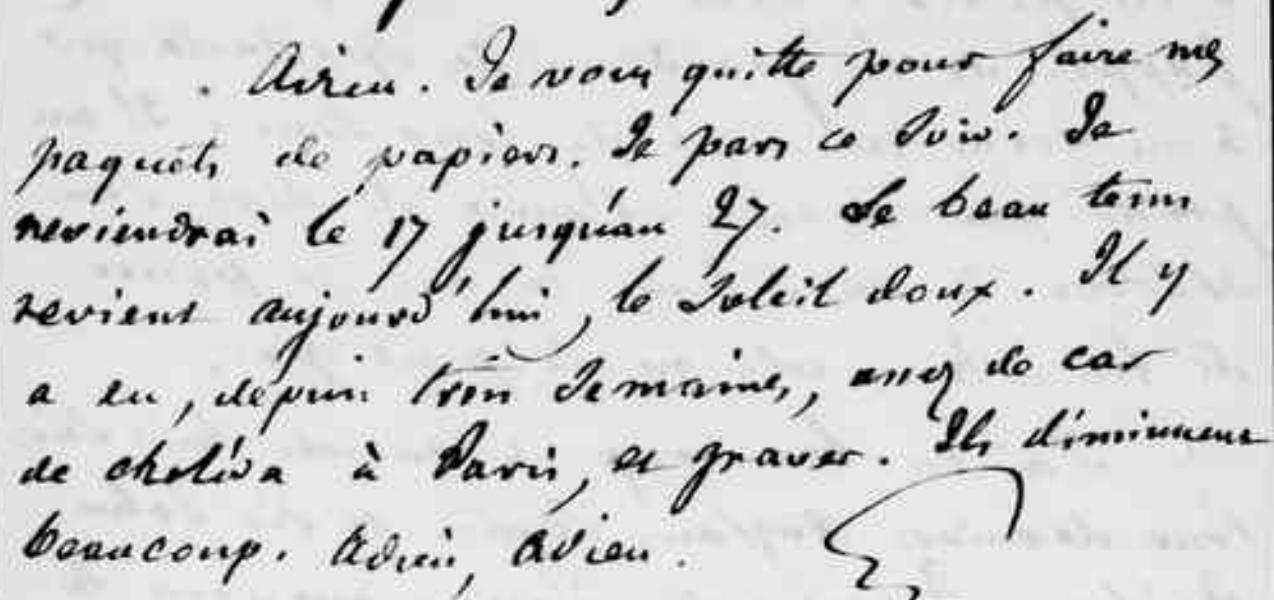 Adieu. Je vous quitte pour faire mes
paquets de papiers. Je pars ce soir. Je
reviendrai le 17 jusqu'au 27. Le beau tems
revient aujourd'hui, le soleil doux. Il y
a eu, depuis trois semaines, assez de cas
de choléra à Paris, et graves. Ils diminuent
beaucoup. Adieu, adieu.